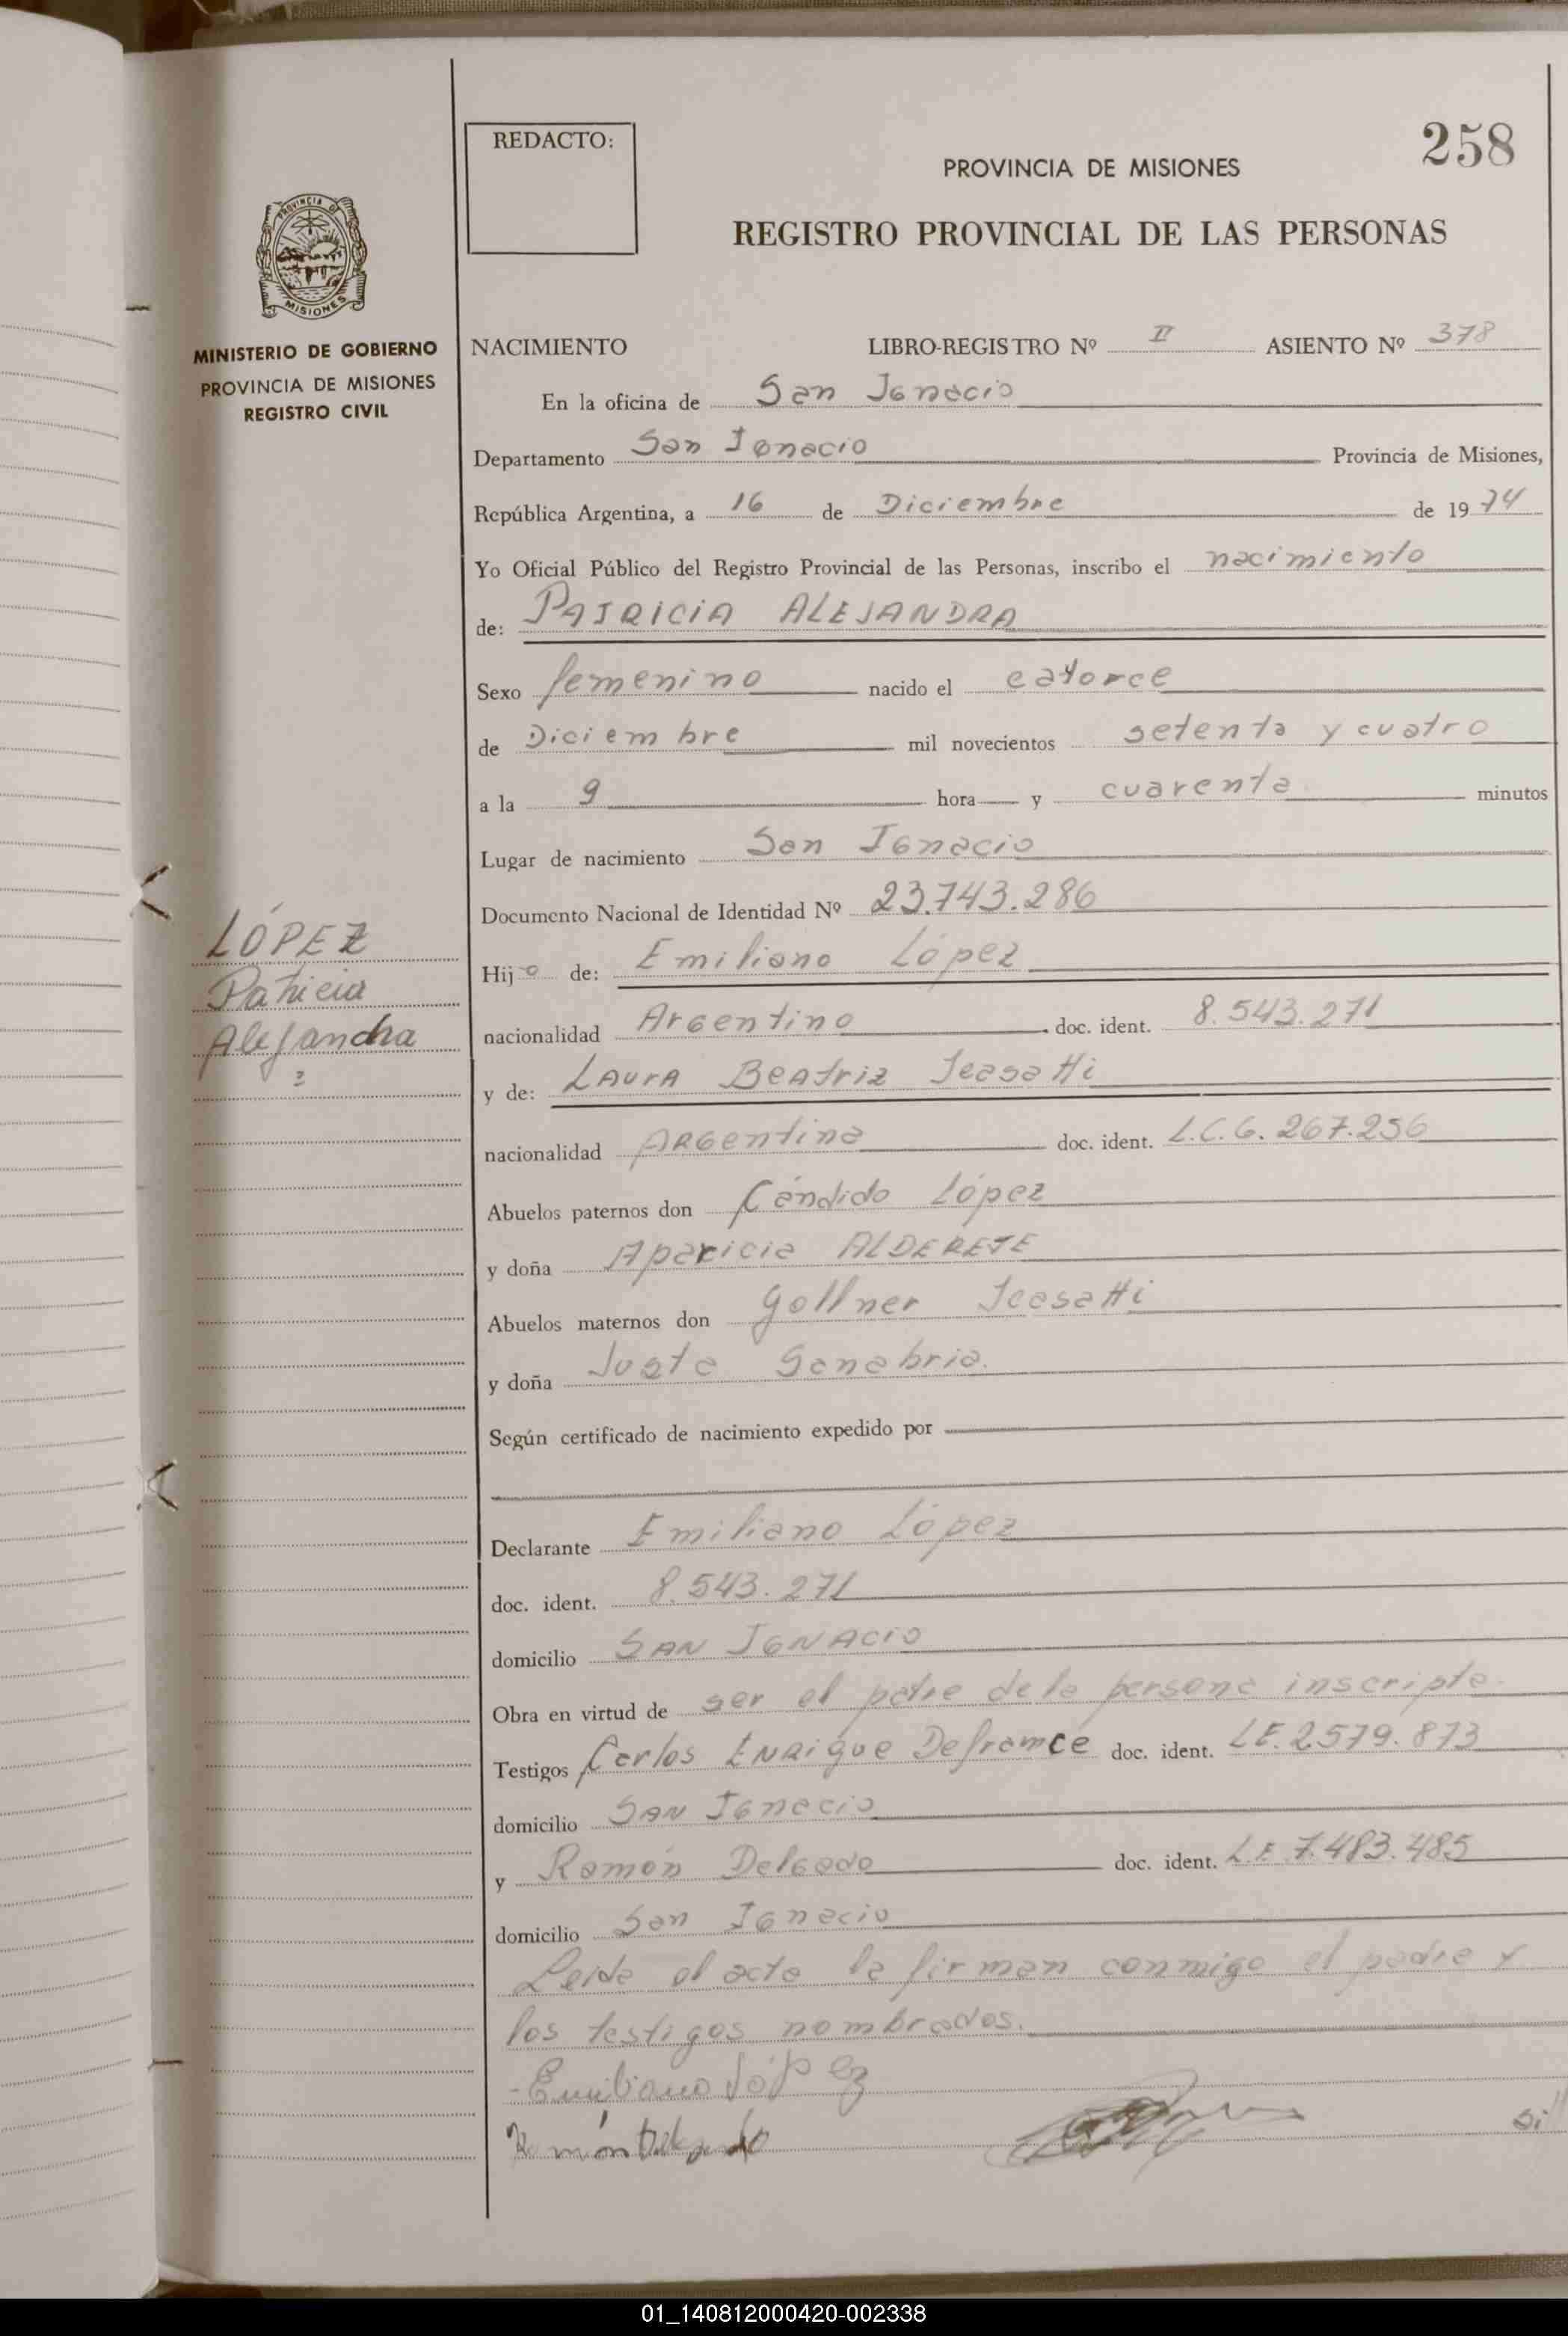 REDACTO:
258
PROVINCIA DE MISIONES
REGISTRO PROVINCIAL DE LAS PERSONAS
PROVINCIA DE
MISIONES
MINISTERIO DE GOBIERNO
PROVINCIA DE MISIONES
REGISTRO CIVIL
NACIMIENTO LIBRO-REGISTRO Nº II ASIENTO Nº 378
En la oficina de San Ignacio
Departamento San Ignacio Provincia de Misiones,
República Argentina, a 16 de Diciembre de 1974
Yo Oficial Público del Registro Provincial de las Personas, inscribo el nacimiento
de: PATRICIA ALEJANDRA
Sexo femenino nacido el catorce
de Diciembre mil novecientos setenta y cuatro
a la 9 hora y cuarenta minutos
Lugar de nacimiento San Ignacio
Documento Nacional de Identidad Nº 23.743.286
LÓPEZ
Patricia
Alejandra
Hijo de: Emiliano López
nacionalidad Argentino doc. ident. 8.543.271
y de: Laura Beatriz
nacionalidad Argentina doc. ident. L.C. 6.267.256
Abuelos paternos don Cándido López
y doña Aparicia ALDERETE
Abuelos maternos don Gollner
y doña Justa Sanabria.
Según certificado de nacimiento expedido por
Declarante Emiliano López
doc. ident. 8.543.271
domicilio SAN IGNACIO
Obra en virtud de ser el padre de la persona inscripta.
Testigos Carlos Enrique Defrance doc. ident. L.E. 2.579.873
domicilio San Ignacio
y Ramón Delgado doc. ident. L.E. 7.483.485
domicilio San Ignacio
Leida el acta la firman conmigo el padre y
los testigos nombrados.
Emiliano López
Ramón Delgado
01_140812000420-002338